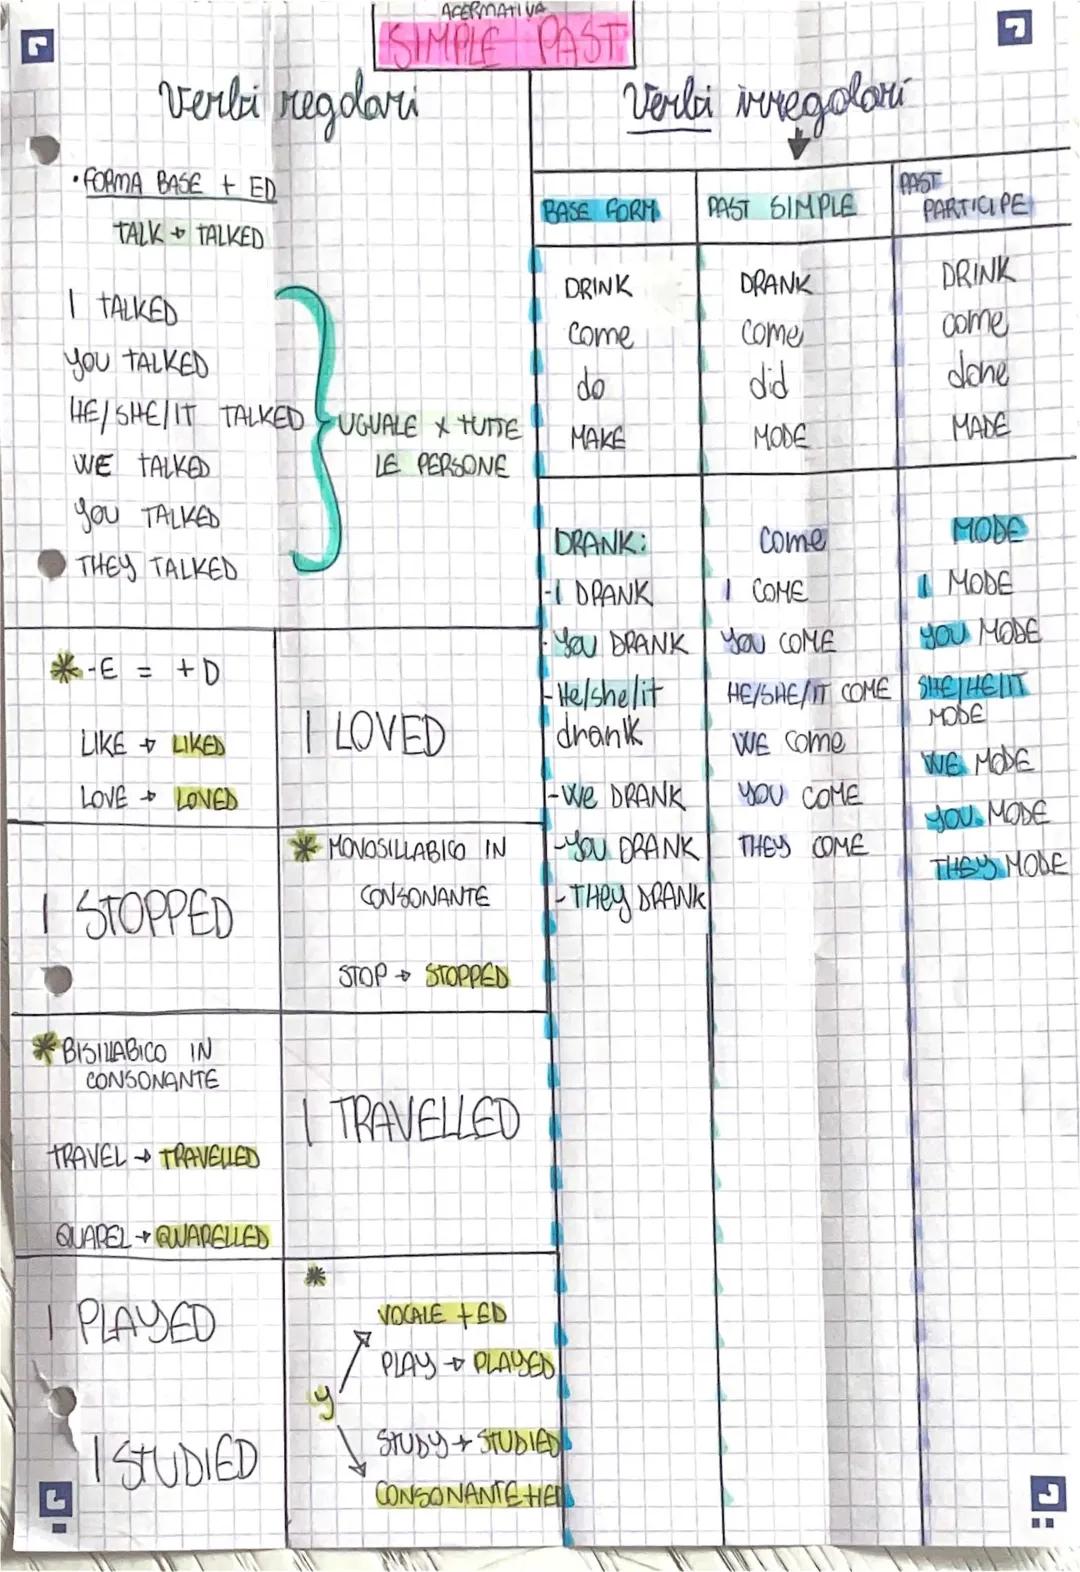 AFFERMATIVA
SIMPLE PAST
Verbi regolari
• FORMA BASE + ED
TALK → TALKED
I TALKED
YOU TALKED
HE/SHE/IT TALKED
WE TALKED
YOU TALKED
THEY TALKED
UGUALE X TUTTE
LE PERSONE
* -E = +D
LIKE → LIKED
LOVE → LOVED
I LOVED
I STOPPED
* MONOSILLABICO IN
CONSONANTE
STOP → STOPPED
* BISILLABICO IN
CONSONANTE
TRAVEL → TRAVELLED
QUAREL → QUARELLED
I TRAVELLED
I PLAYED
I STUDIED
*
VOCALE + ED
PLAY → PLAYED
y
STUDY → STUDIED
CONSONANTE +IED
Verbi irregolari
BASE FORM PAST SIMPLE PAST PARTICIPE
DRINK DRANK DRINK
come come come
do did done
MAKE MODE MADE
DRANK:
-I DRANK
- You DRANK
- He/she/it
drank
-We DRANK
-YOU DRANK
- THEY DRANK
come
I COME
YOU COME
HE/SHE/IT COME
WE come
YOU COME
THEY COME
MODE
I MODE
YOU MODE
SHE/HE/IT
MODE
WE MODE
YOU MODE
THEY MODE